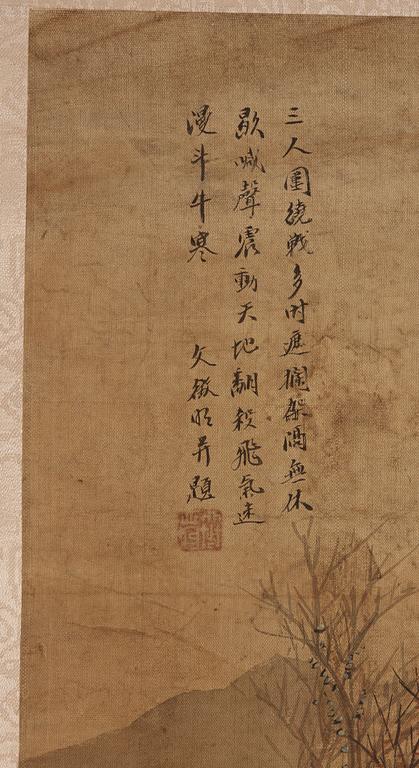 三人圍繞戰多时遮攔架隔無休
歇喊聲震動天地翻殺飛氣迷
漫斗牛寒
文徵明并題